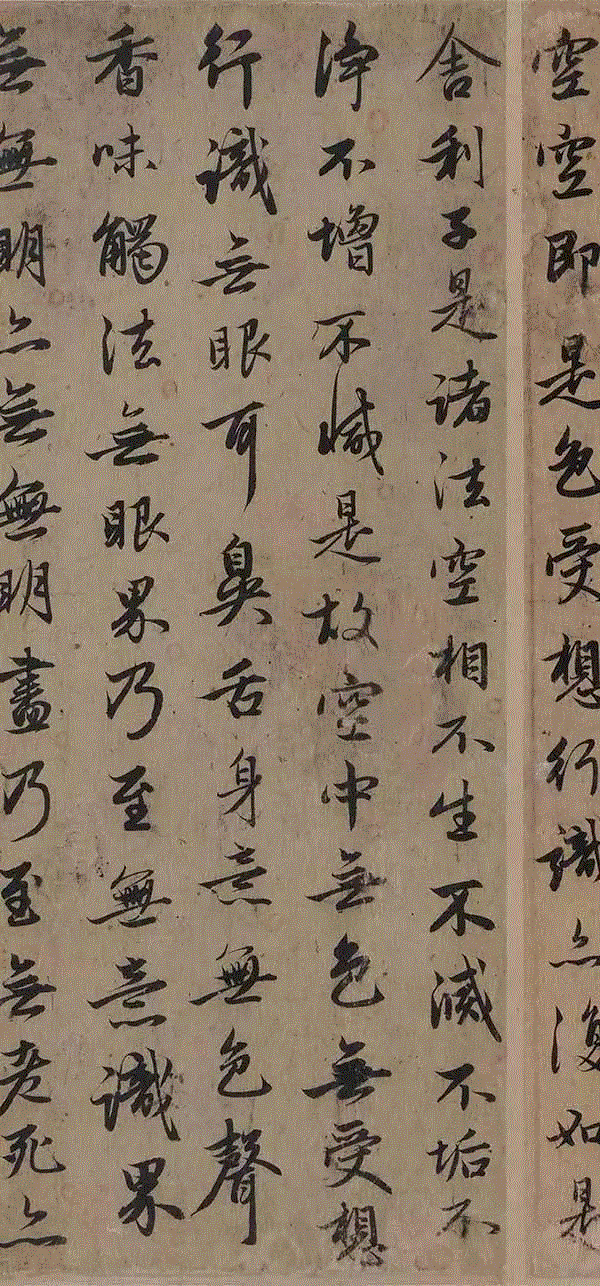 空空即是色受想行識亦復如是
舍利子是諸法空相不生不滅不垢不
淨不增不減是故空中無色無受想
行識無眼耳鼻舌身意無色聲
香味觸法無眼界乃至無意識界
無無明亦無無明盡乃至無老死亦